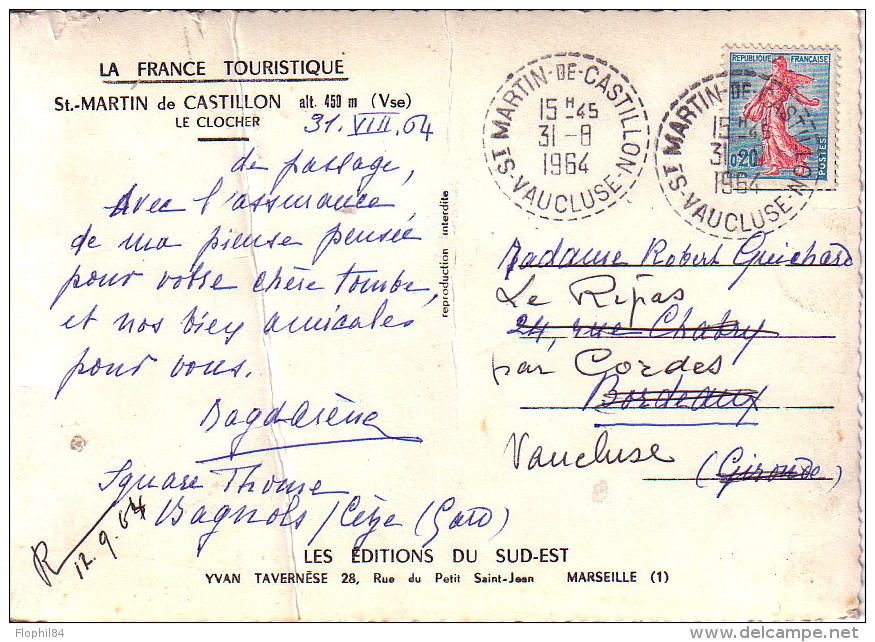 LA FRANCE TOURISTIQUE
St.-MARTIN de CASTILLON alt. 450 m (Vse)
LE CLOCHER
31.VIII.64
de passage,
Avec l'assurance
de ma pieuse pensée
pour votre chère tombe,
et nos bien amicales
pour vous.
Square Thome
Bagnols / Cèze (Gard)
R 12.9.64
reproduction interdite
ST MARTIN-DE-CASTILLON
15H45
31-8
1964
VAUCLUSE
ST MARTIN-DE-CASTILLON
15H45
31-8
1964
VAUCLUSE
REPUBLIQUE FRANÇAISE
0,20
POSTES
Madame Robert Guichard
Le Ripas
24, rue Chabry
par Cordes
Bordeaux
Vaucluse
(Gironde)
LES ÉDITIONS DU SUD-EST
YVAN TAVERNÈSE 28, Rue du Petit Saint-Jean MARSEILLE (1)
Flophil84
delcampe.net